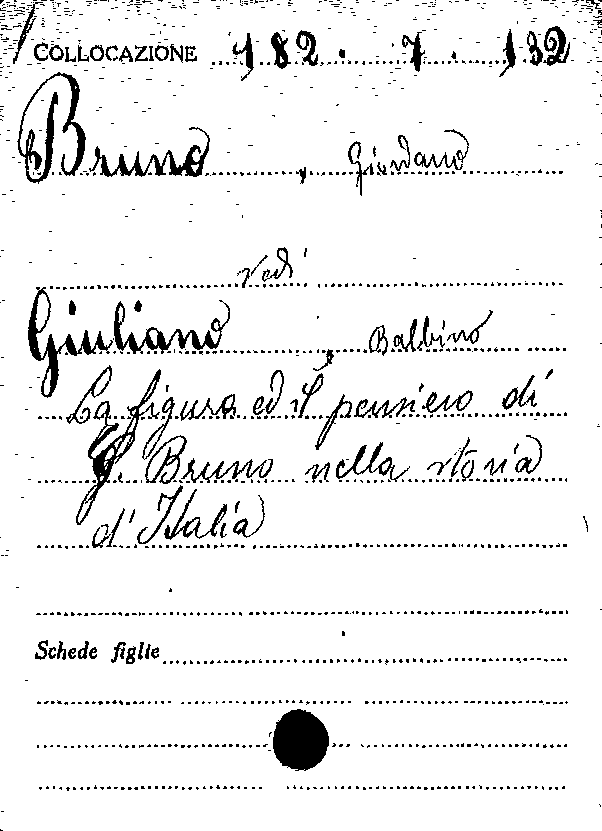 COLLOCAZIONE 182. 7. 132
Bruno, Giordano
vedi
Giuliano, Balbino
La figura ed il pensiero di
G. Bruno nella storia
d'Italia
Schede figlie